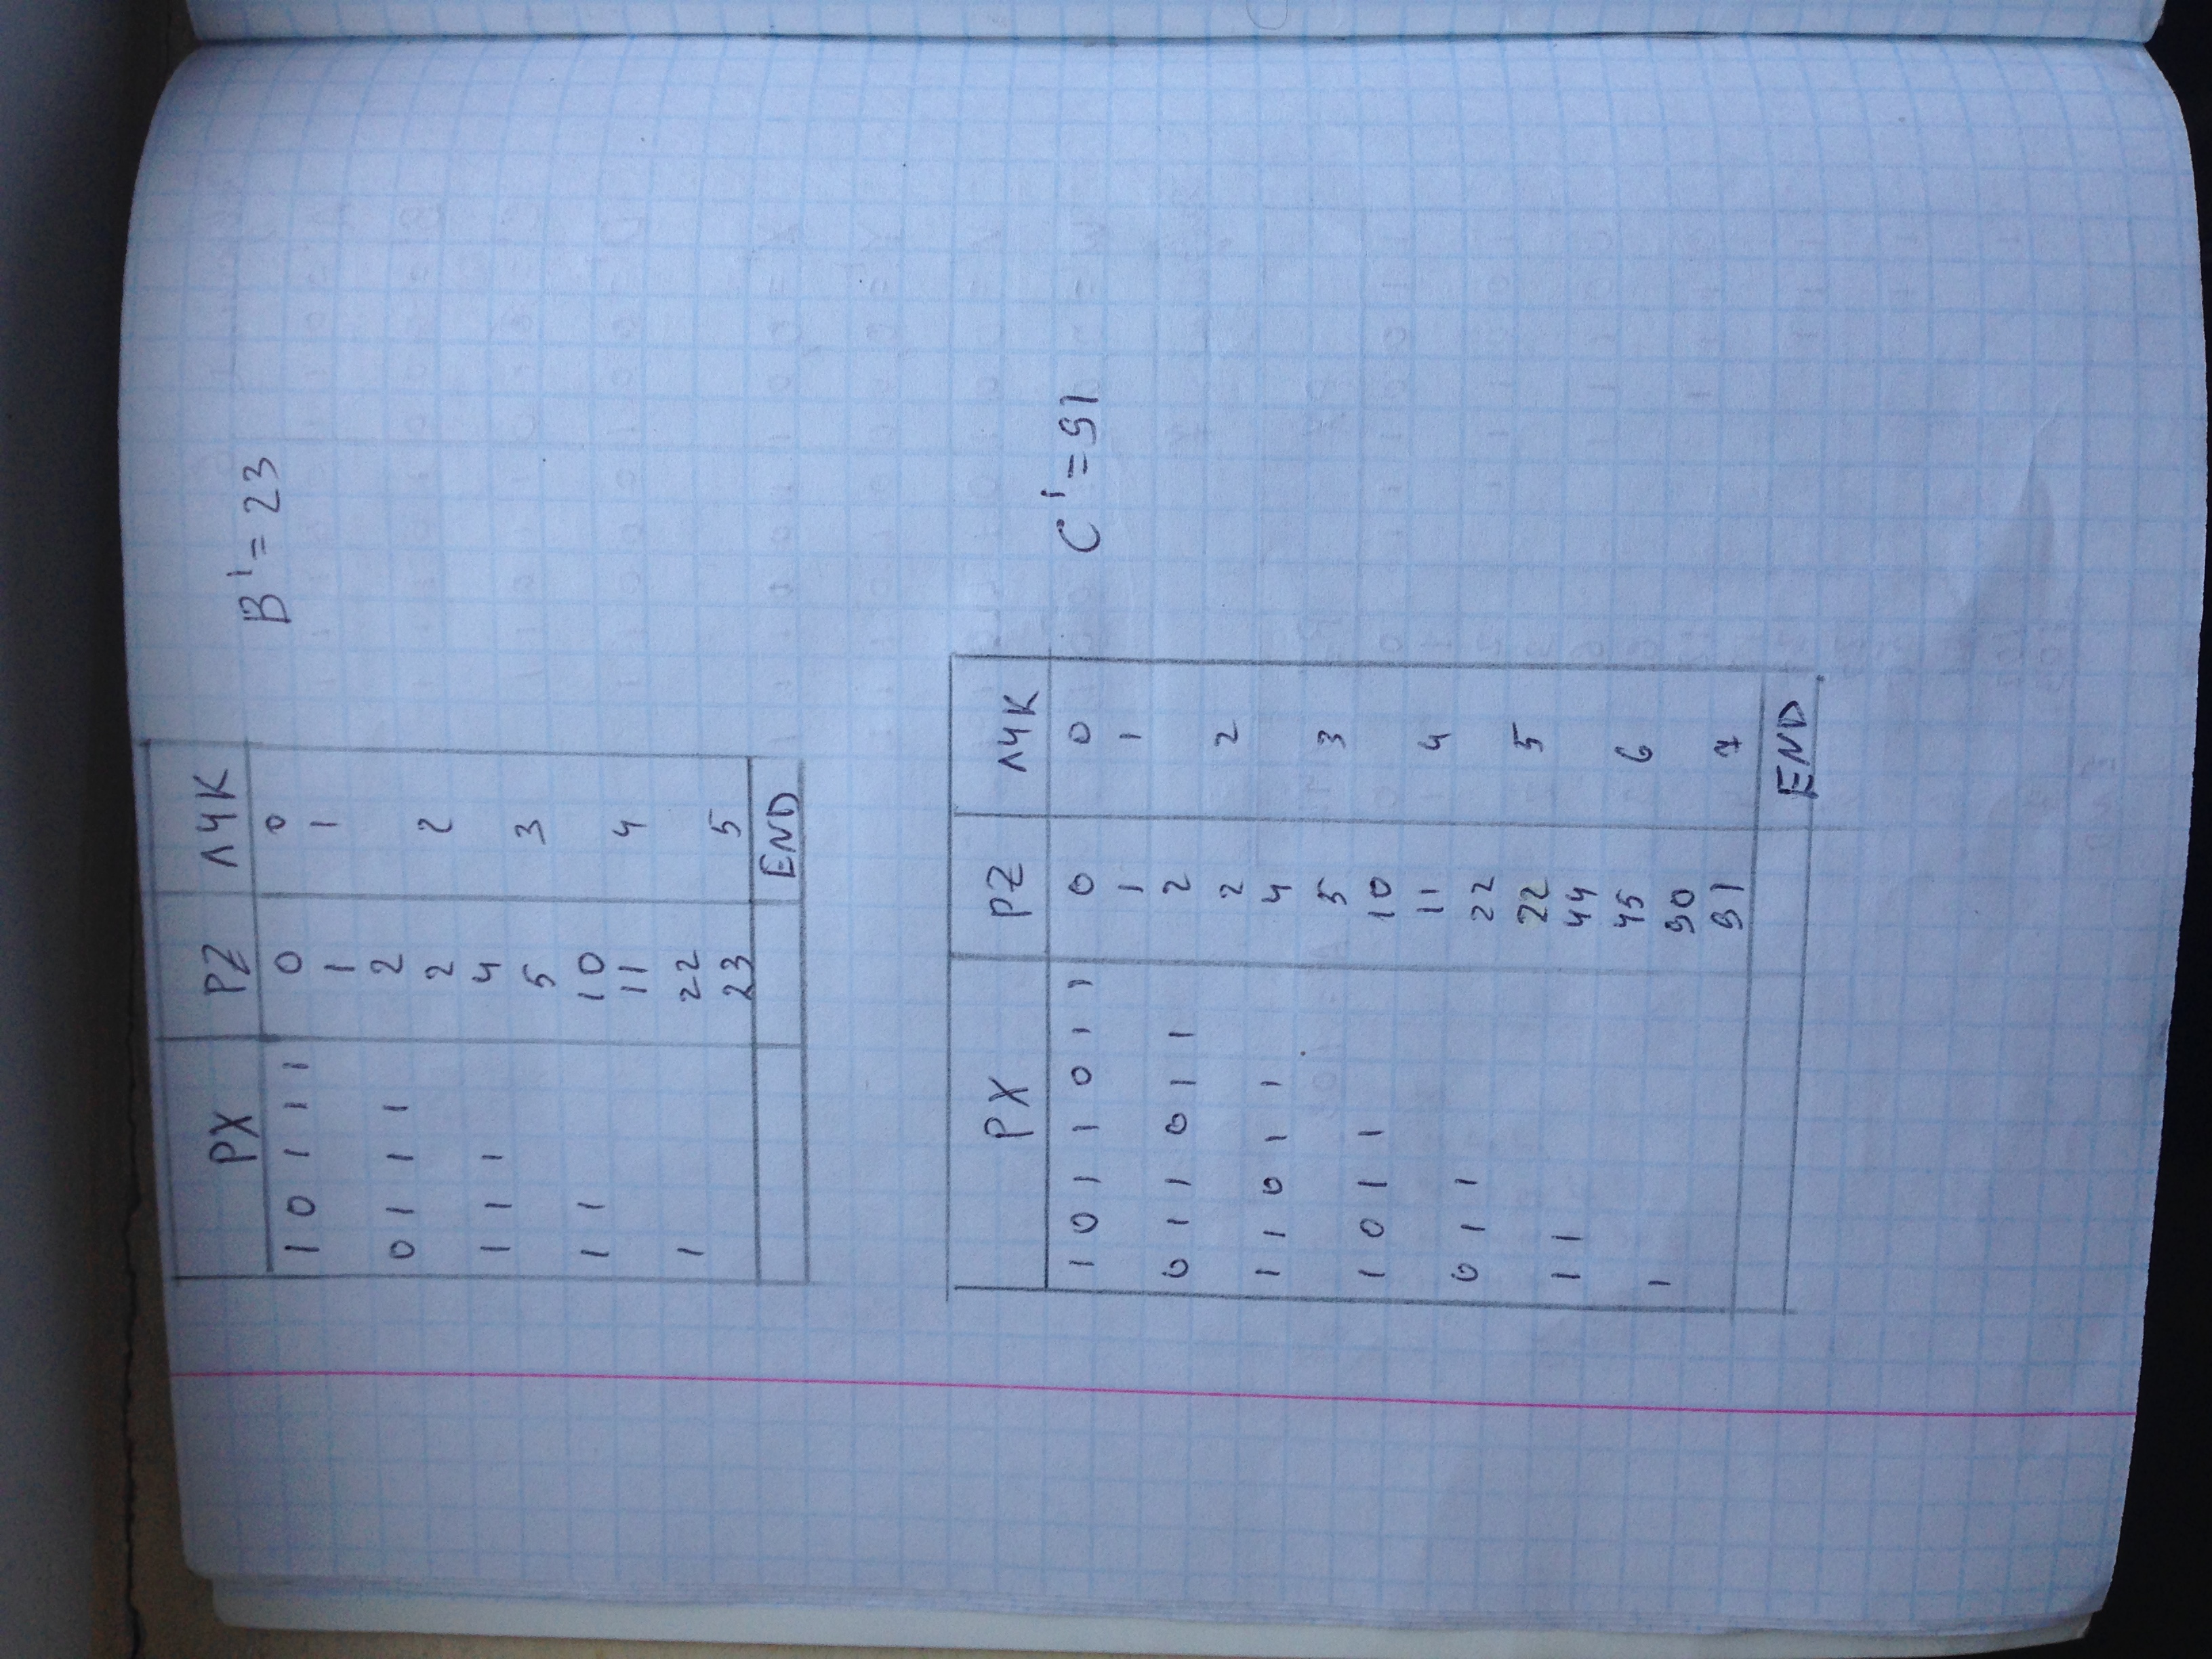 PX PZ ЛЧК
B' = 23
1 0 1 1 1 0 0
1 1
0 1 1 1 2
2 2
1 1 1 4
5 3
1 1 10
11 4
1 22
23 5
END
PX PZ ЛЧК
C' = 91
1 0 1 1 0 1 1 0 0
1 1
0 1 1 0 1 1 2
2 2
1 1 0 1 1 4
5 3
1 0 1 1 10
11 4
0 1 1 22
22 5
1 1 44
45 6
1 90
91 7
END